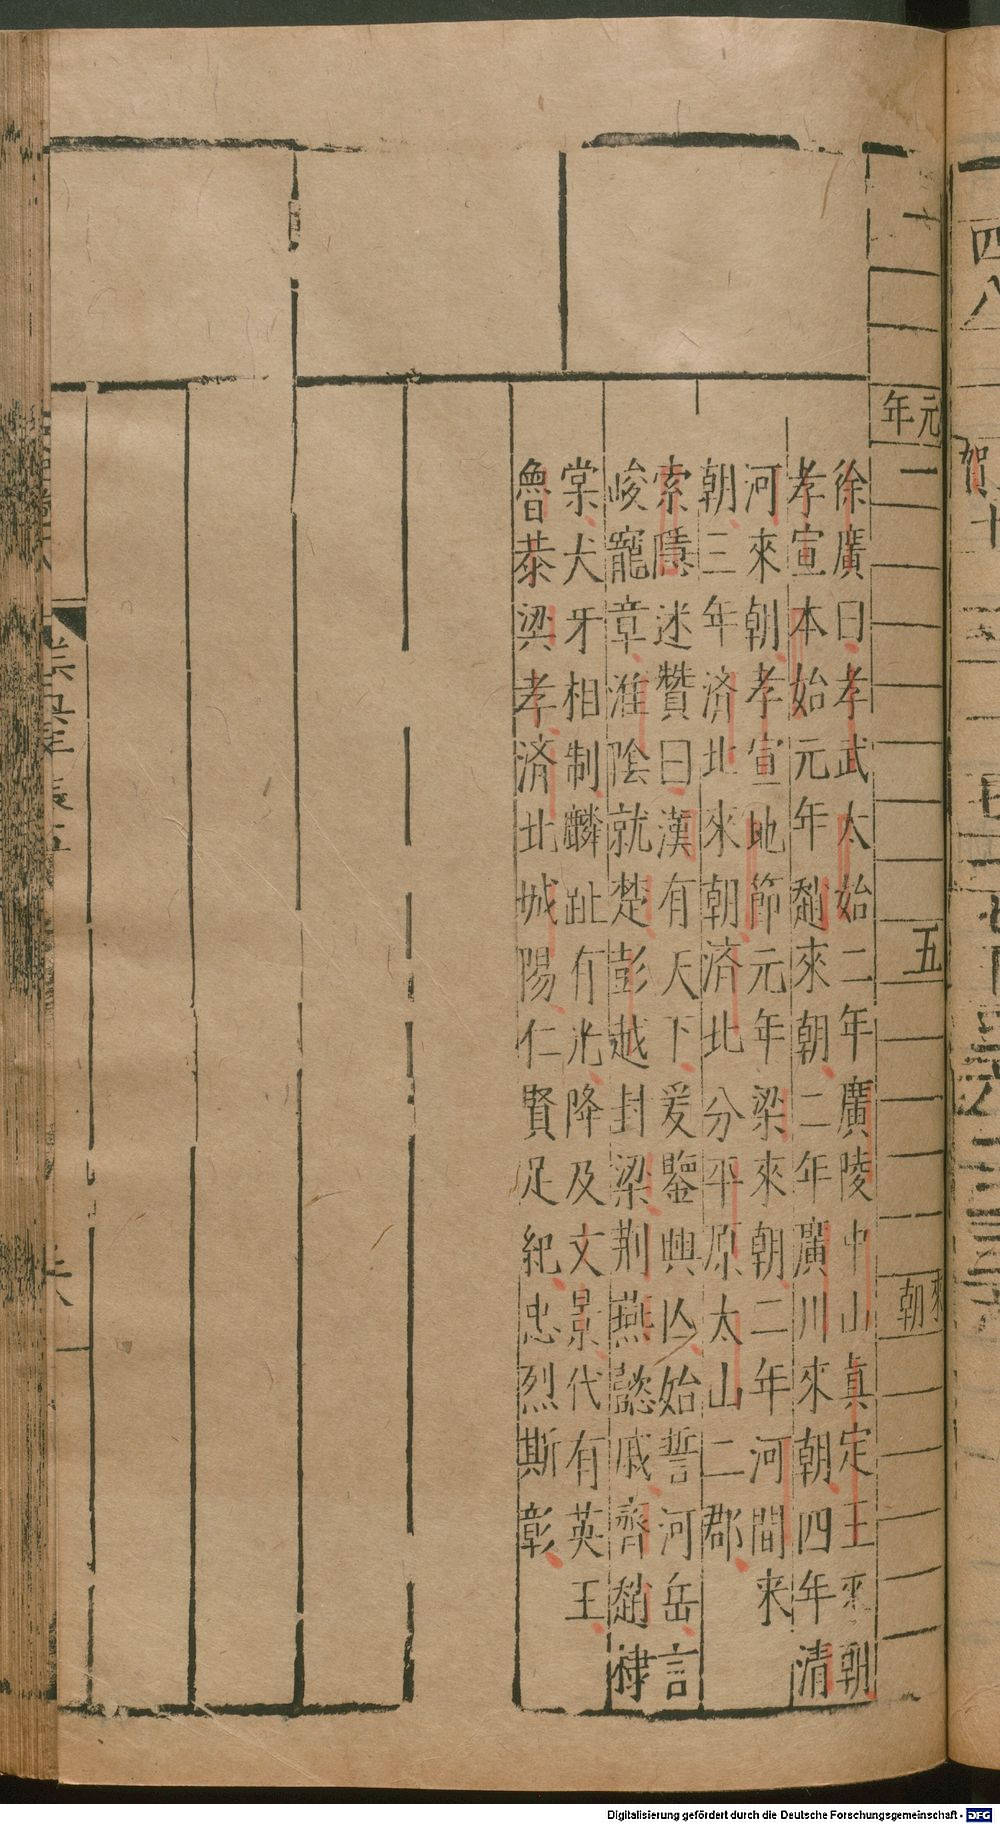 元年
五
來朝
徐廣曰孝武太始二年廣陵中山眞定王來朝
孝宣本始元年趙來朝二年廣川來朝四年清
河來朝孝宣地節元年梁來朝二年河間来
朝三年済北來朝済北分平原太山二郡
索隱述贊曰漢有天下爰鑒興亾始誓河岳言
峻寵章淮陰就楚彭越封梁荆燕懿戚齊趙棣
棠犬牙相制麟趾有光降及文景代有英王
魯恭梁孝済北城陽仁賢足紀忠烈斯彰
四八
賀十
Digitalisierung gefördert durch die Deutsche Forschungsgemeinschaft - DFG